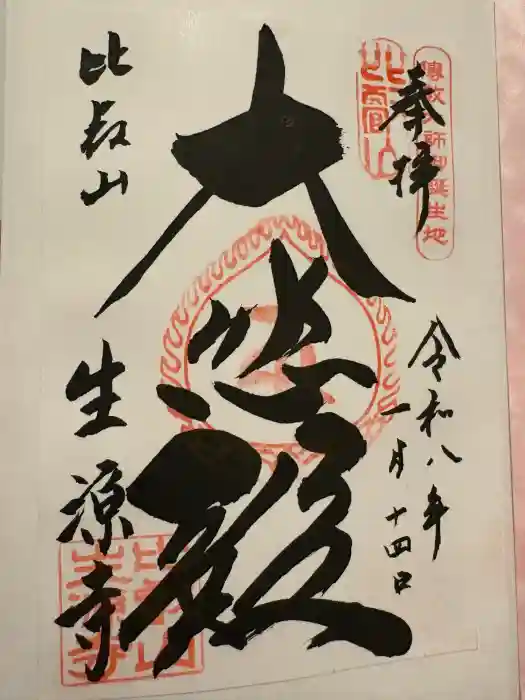 奉拝
傳教大師御誕生地
比叡山
令和八年
一月十四日
大悲殿
比叡山
生源寺
比叡山
生源寺